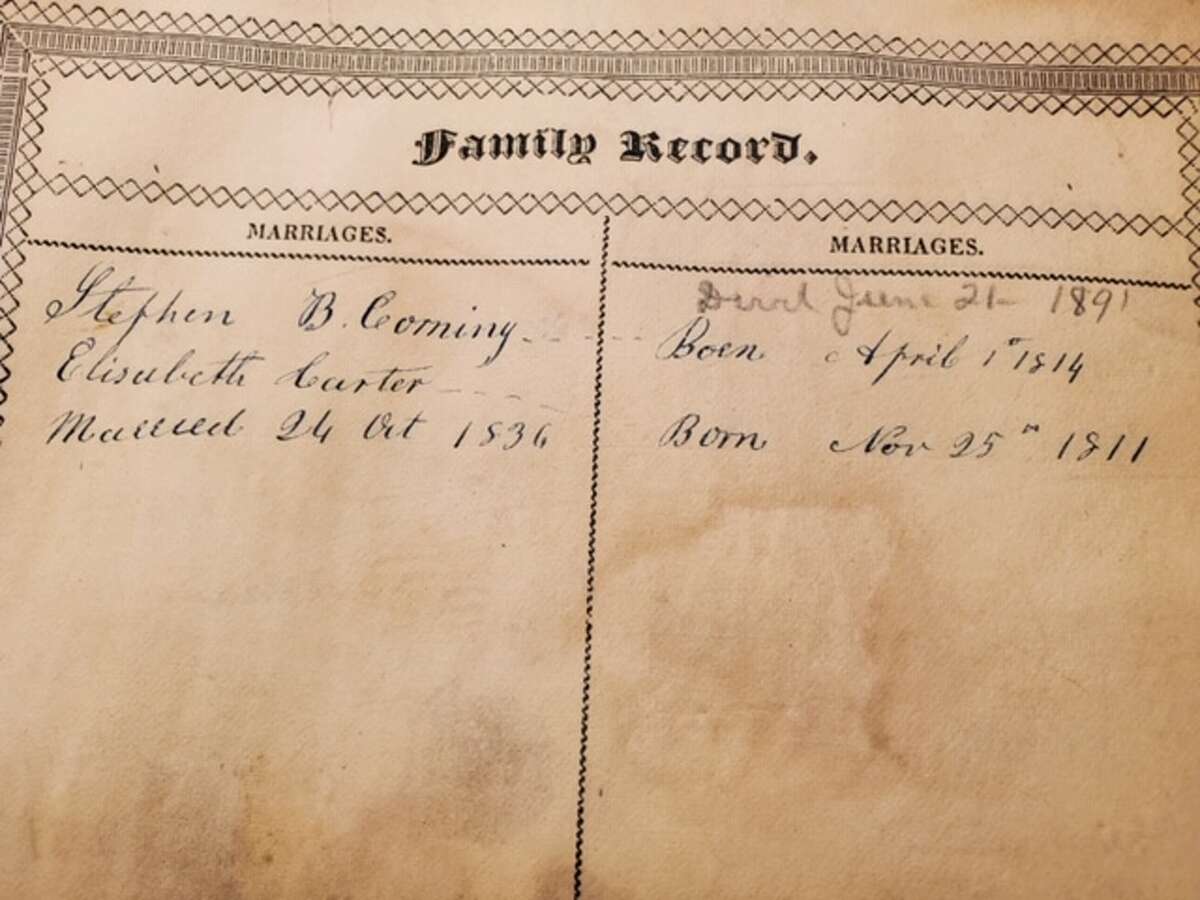 Family Record.
MARRIAGES.
Stephen B. Corning
Elisabeth Carter
Married 24 Oct 1836
MARRIAGES.
Died June 21 1891
Born April 1st 1814
Born Nov 25th 1811